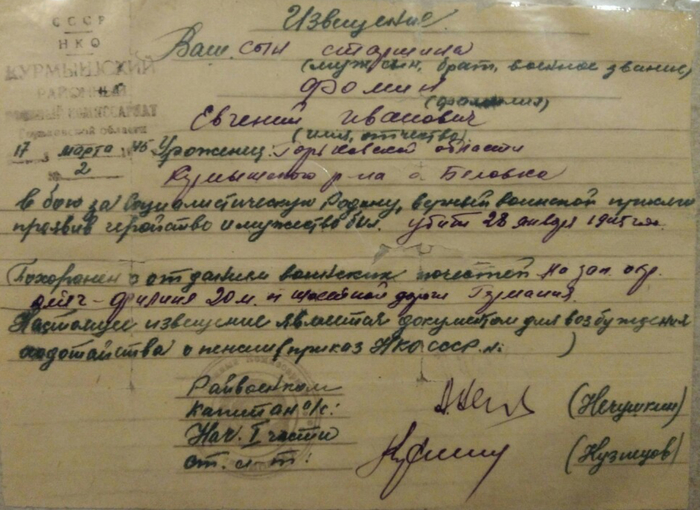 СССР
НКО
КУРМЫШСКИЙ
РАЙОННЫЙ
ВОЕННЫЙ КОМИССАРИАТ
Горьковской области
17 марта 1945
№ 2
Извещение
Ваш сын старшина
(муж, сын, брат, военное звание)
Фомин
(фамилия)
Евгений Иванович
(имя, отчество)
Уроженец: Горьковской области
Курмышского р-на с. Беловка
в бою за Социалистическую Родину, верный воинской присяге
проявив геройство и мужество был. убит 28 января 1945 г.
Похоронен с отданием воинских почестей на зап.
20 м. шоссейной дороги
Настоящее извещение является документом для возбуждения
ходотайства о пенсии (приказ НКО СССР. №: )
Райвоенком
Капитан
(Нечушкин)
Нач. I части
ст. л-т:
(Кузнецов)